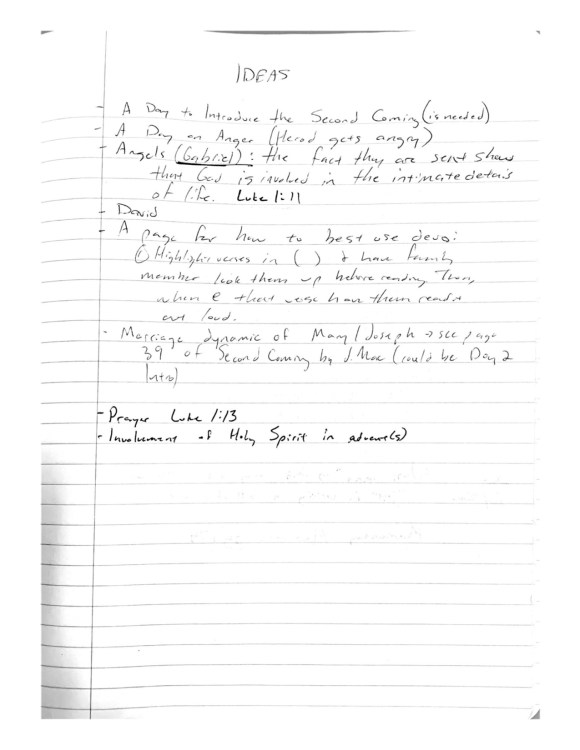 IDEAS
- A Day to Introduce the Second Coming (is needed)
- A Day on Anger (Herod gets angry)
- Angels (Gabriel): the fact they are sent show
that God is involved in the intimate details
of life. Luke 1:11
- David
- A page for how to best use devo:
① Highlight verses in ( ) & have family
member look them up before reading. Then,
when @ that verse have them read it
out loud.
- Marriage dynamic of Mary/Joseph → see page
39 of Second Coming by J. Mac (could be Day 2
Intro)
- Prayer Luke 1:13
- Involvement of Holy Spirit in advent(s)